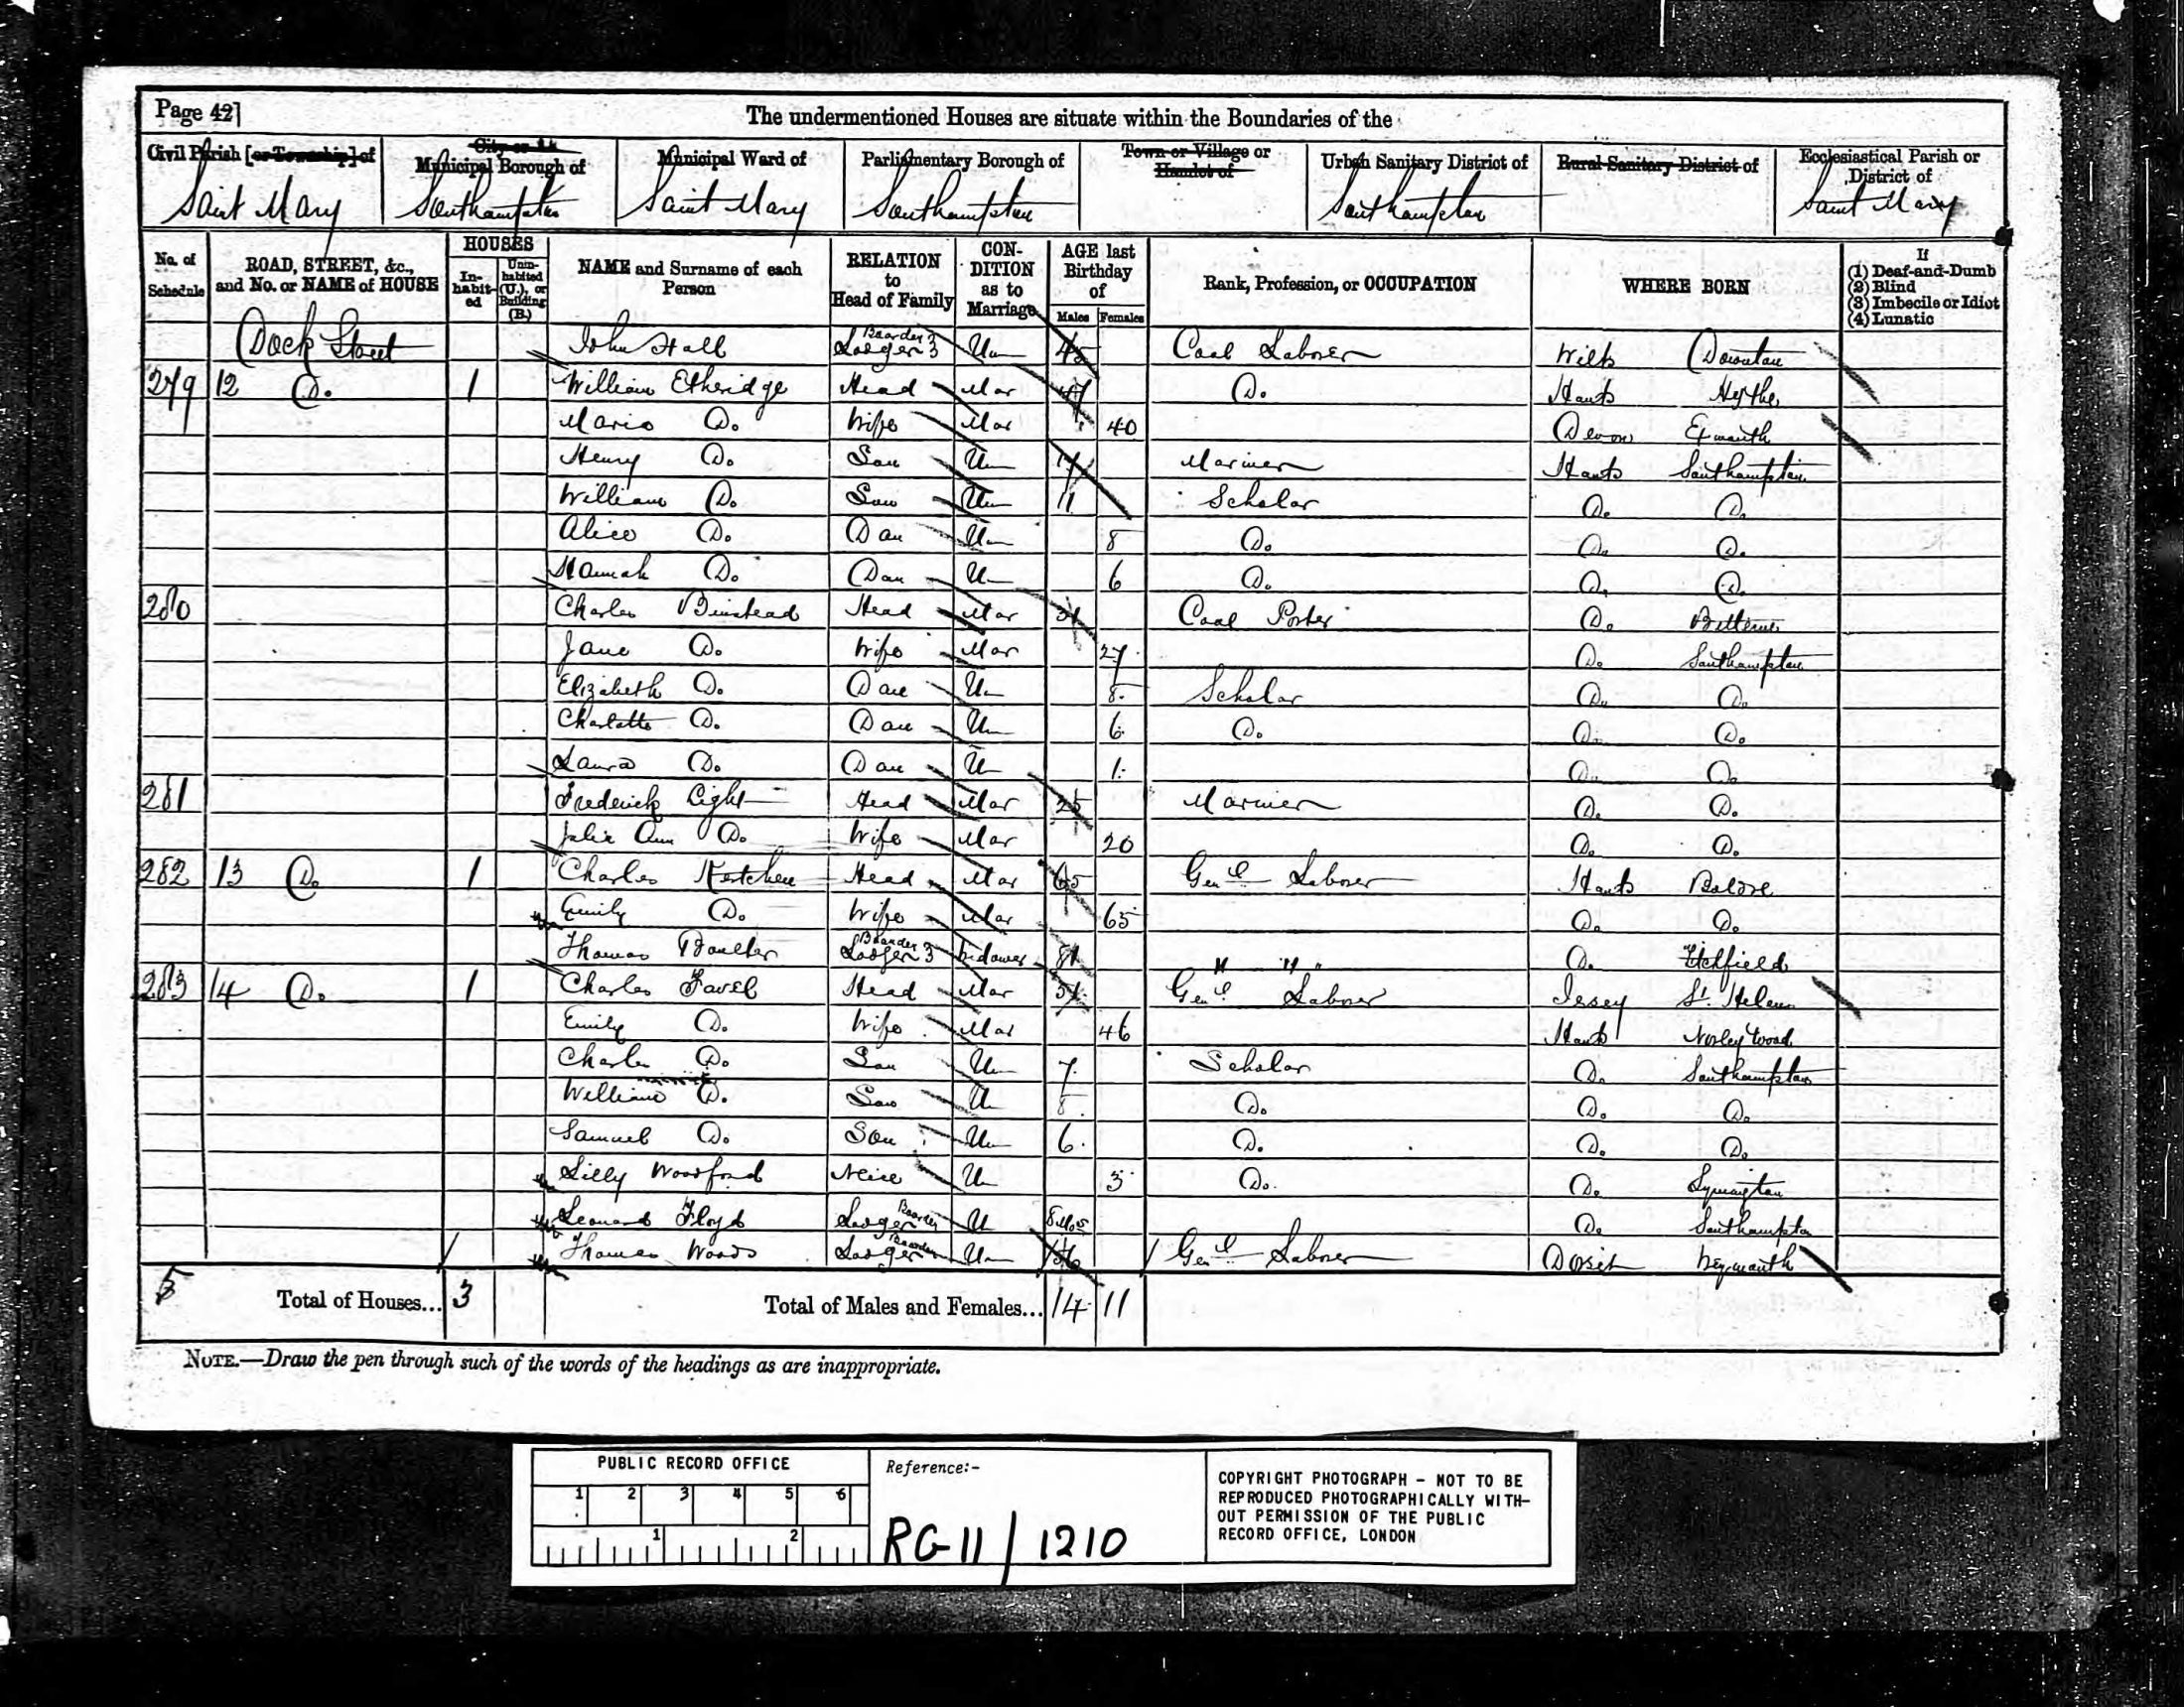 Page 42]
The undermentioned Houses are situate within the Boundaries of the
Civil Parish [or Township] of
City or
Municipal Borough of
Municipal Ward of
Parliamentary Borough of
Town or Village or
Hamlet of
Urban Sanitary District of
Rural Sanitary District of
Ecclesiastical Parish or
District of
Saint Mary Southampton Saint Mary Southampton Southampton Saint Mary
No. of Schedule
ROAD, STREET, &c., and No. or NAME of HOUSE
HOUSES
In-habit-ed
Unin-habited (U.), or Building (B.)
NAME and Surname of each Person
RELATION to Head of Family
CON-DITION as to Marriage
AGE last Birthday of
Males Females
Rank, Profession, or OCCUPATION
WHERE BORN
If
(1) Deaf-and-Dumb
(2) Blind
(3) Imbecile or Idiot
(4) Lunatic
Dock Street John Hall Boarder Lodger 3 Un 45 Coal Laborer Wilts Downton
279 12 Do. 1 William Etheridge Head Mar Do. Hants Hythe
Maria Do. Wife Mar 40 Devon Exmouth
Henry Do. Son Un 17 Mariner Hants Southampton
William Do. Son Un 11 Scholar Do. Do.
Alice Do. Dau Un 8 Do. Do. Do.
Hannah Do. Dau Un 6 Do. Do. Do.
280 Charles Binstead Head Mar 31 Coal Porter Do. Bitterne
Jane Do. Wife Mar 27 Do. Southampton
Elizabeth Do. Dau Un 8 Scholar Do. Do.
Charlotte Do. Dau Un 6 Do. Do. Do.
Laura Do. Dau Un 1 Do. Do.
281 Frederick Light Head Mar 25 Mariner Do. Do.
Julia Ann Do. Wife Mar 20 Do. Do.
282 13 Do. 1 Charles Head Mar 65 Genl Laborer Hants Boldre
Emily Do. Wife Mar 65 Do. Do.
Thomas Boarder Lodger 3 Widower 81 " " " Do.
283 14 Do. 1 Charles Favel Head Mar 51 Genl Laborer Jersey St. Helen
Emily Do. Wife Mar 46 Hants Norley Wood
Charles Do. Son Un 7 Scholar Do. Southampton
William Do. Son Un 8 Do. Do. Do.
Samuel Do. Son Un 6 Do. Do. Do.
Lilly Woodford Neice Un 3 Do. Do. Lymington
Leonard Floyd Lodger Boarder Un 8 Mos Do. Southampton
Thomas Woods Lodger Boarder Un 56 Genl Laborer Dorset Weymouth
5 Total of Houses... 3 Total of Males and Females... 14 11
NOTE.—Draw the pen through such of the words of the headings as are inappropriate.
PUBLIC RECORD OFFICE
1 2 3 4 5 6
1 2
Reference:-
RG 11 / 1210
COPYRIGHT PHOTOGRAPH - NOT TO BE
REPRODUCED PHOTOGRAPHICALLY WITH-
OUT PERMISSION OF THE PUBLIC
RECORD OFFICE, LONDON